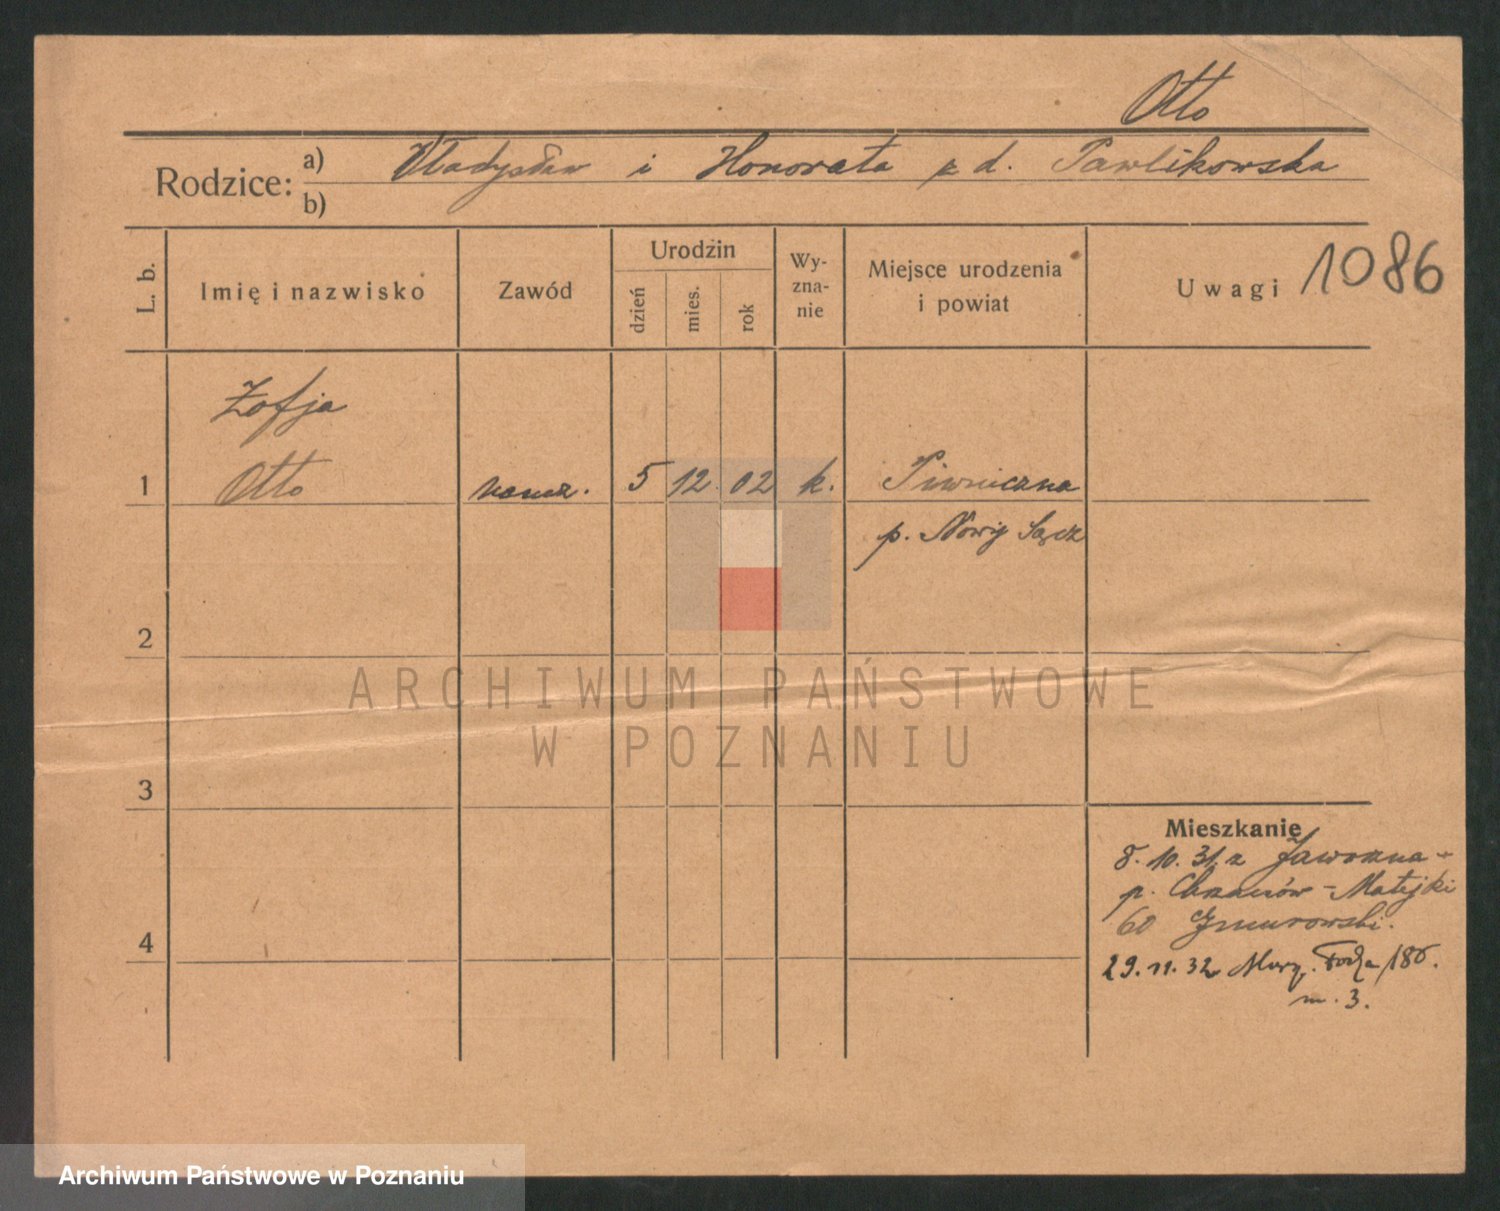 Otto
Rodzice: a) Władysław i Honorata z d. Pawlikowska
b)
L. b.
Imię i nazwisko
Zawód
Urodzin
dzień
mies.
rok
Wy-
zna-
nie
Miejsce urodzenia
i powiat
Uwagi 1086
Zofja
1 Otto naucz. 5 12 02 k. Piwniczna
p. Nowy Sącz
2
ARCHIWUM PAŃSTWOWE
W POZNANIU
3
Mieszkanie
8.10.31. z Jaworzna -
p. Chrzanów - Matejki
60 Żmurowski.
4
29.11.32 Marsz. Focha 186.
m. 3.
Archiwum Państwowe w Poznaniu